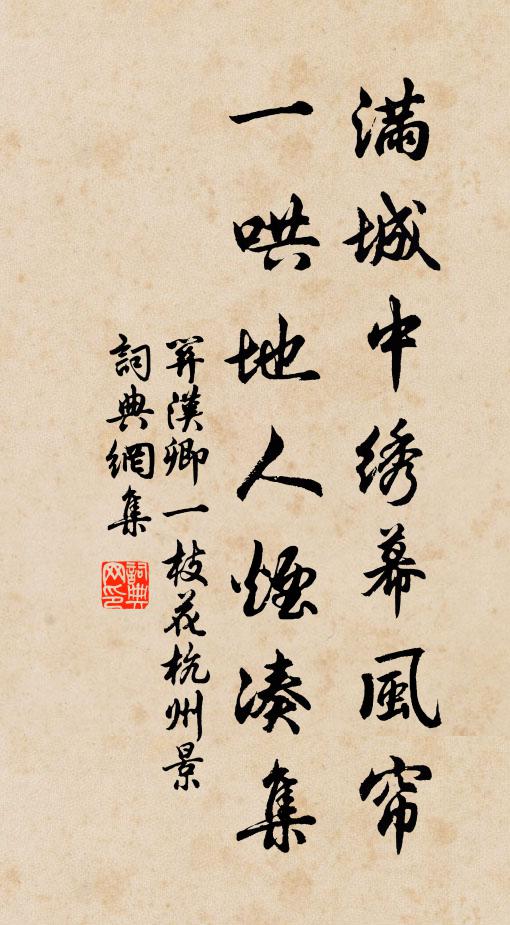 满城中绣幕風帘
一哄地人煙凑集
關漢卿一枝花杭州景
詞典網集
詞典
网印